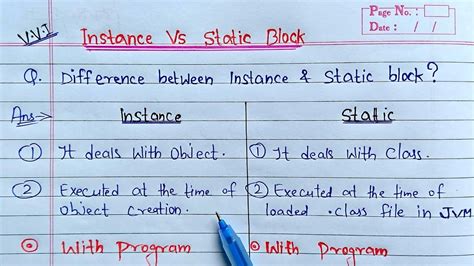 V.V.I
Instance Vs Static Block
Page No. :
Date : / /
Q. Difference between Instance & Static block?
Ans→
Instance
Static
① It deals With Object.
① It deals With Class.
② Executed at the time of
object Creation.
② Executed at the time of
loaded .class file in JVM
With Program
With Program